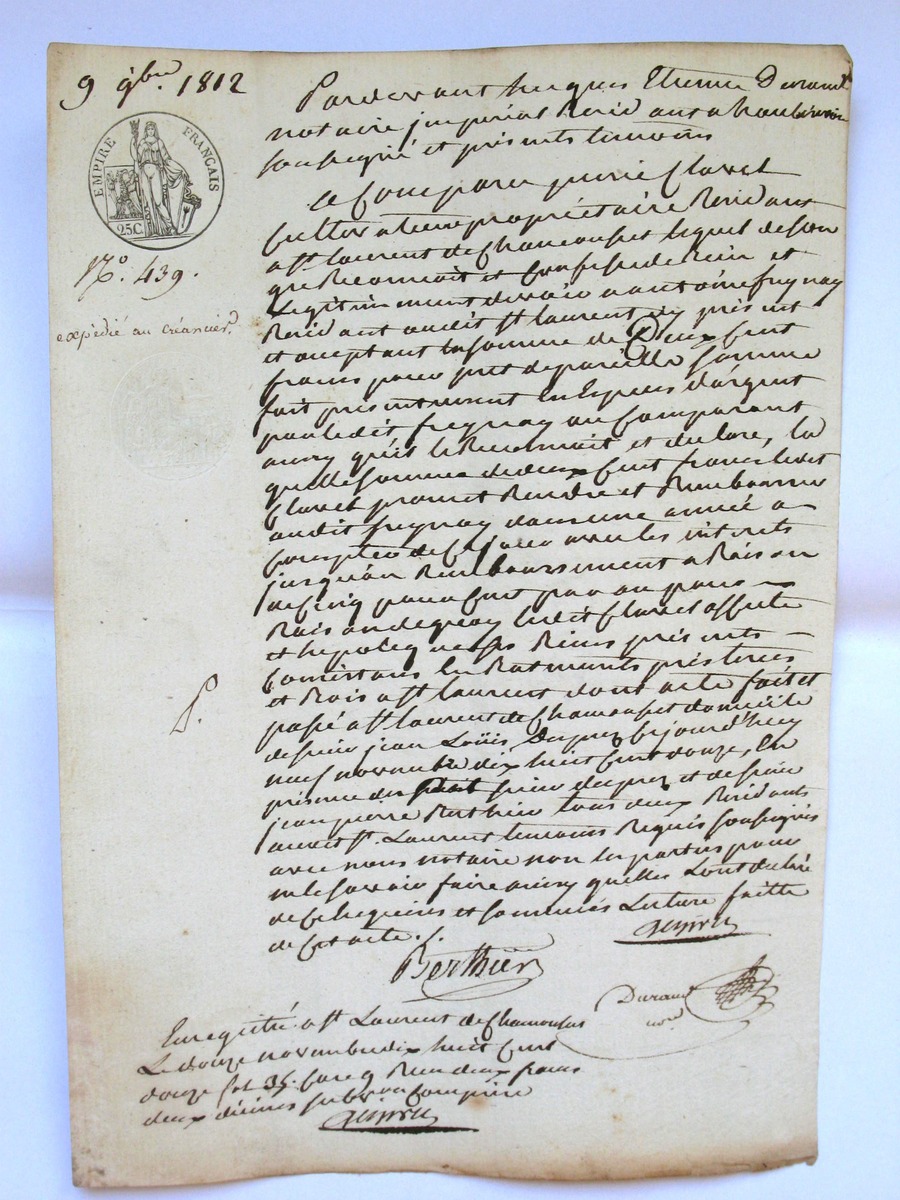 9 9bre. 1812
EMPIRE FRANÇAIS
25C.
N.o 439.
expédié au créancier
Pardevant Jacques Etienne Durand
notaire jmpérial Resid ant a
soussigné et présents temoins
a Comparu pierre Clavel
Cultivateur propriétaire Resid ant
a st. laurent de Chamousset lequel de son
gré Reconnoit et Confesse de bien et
Legitimement devoir a antoine freynay
Resid ant audit st laurent jcy présent
et acceptant la somme de Deux Cent
francs pour pret de pareille somme
fait présentement en Espèces d'argent
par ledit freynay au Comparant
ainsy qu'il le Reconnoit et declare, la
quelle somme de deux Cent francs ledit
Clavel promet Rendre et Rembourser
audit freynay dans une année a
Compter de Ce jour avec les interets
jusqu'au Remboursement a Raison
de Cinq pour Cent par an pour
Raison de quoy ledit Clavel affecte
et hypoteque ses Biens présents
Consistans en Batiments prés terres
et Bois a st laurent dont acte fait et
passé a st laurent de Chamousset domicile
de sieur jean Loüis Dupuy Ce jourd'huy
neuf novembre dix huit Cent douze, En
présence du sieur dupuy et de sieur
jean pierre Berthier tous deux Resid ants
audit st. Laurent temoins Requis soussignés
avec nous notaire non les parties pour
ne le savoir faire ainsy quelles L'ont declaré
de Ce Requises et sommées Lecture faitte
de Cet acte ./.
P.
Berthier
Durand
Enregistré a st Laurent de Chamousset
Le douze novembre dix huit Cent
douze fol 35. Case 9 Reçu deux francs
deux décimes subvon Comprise